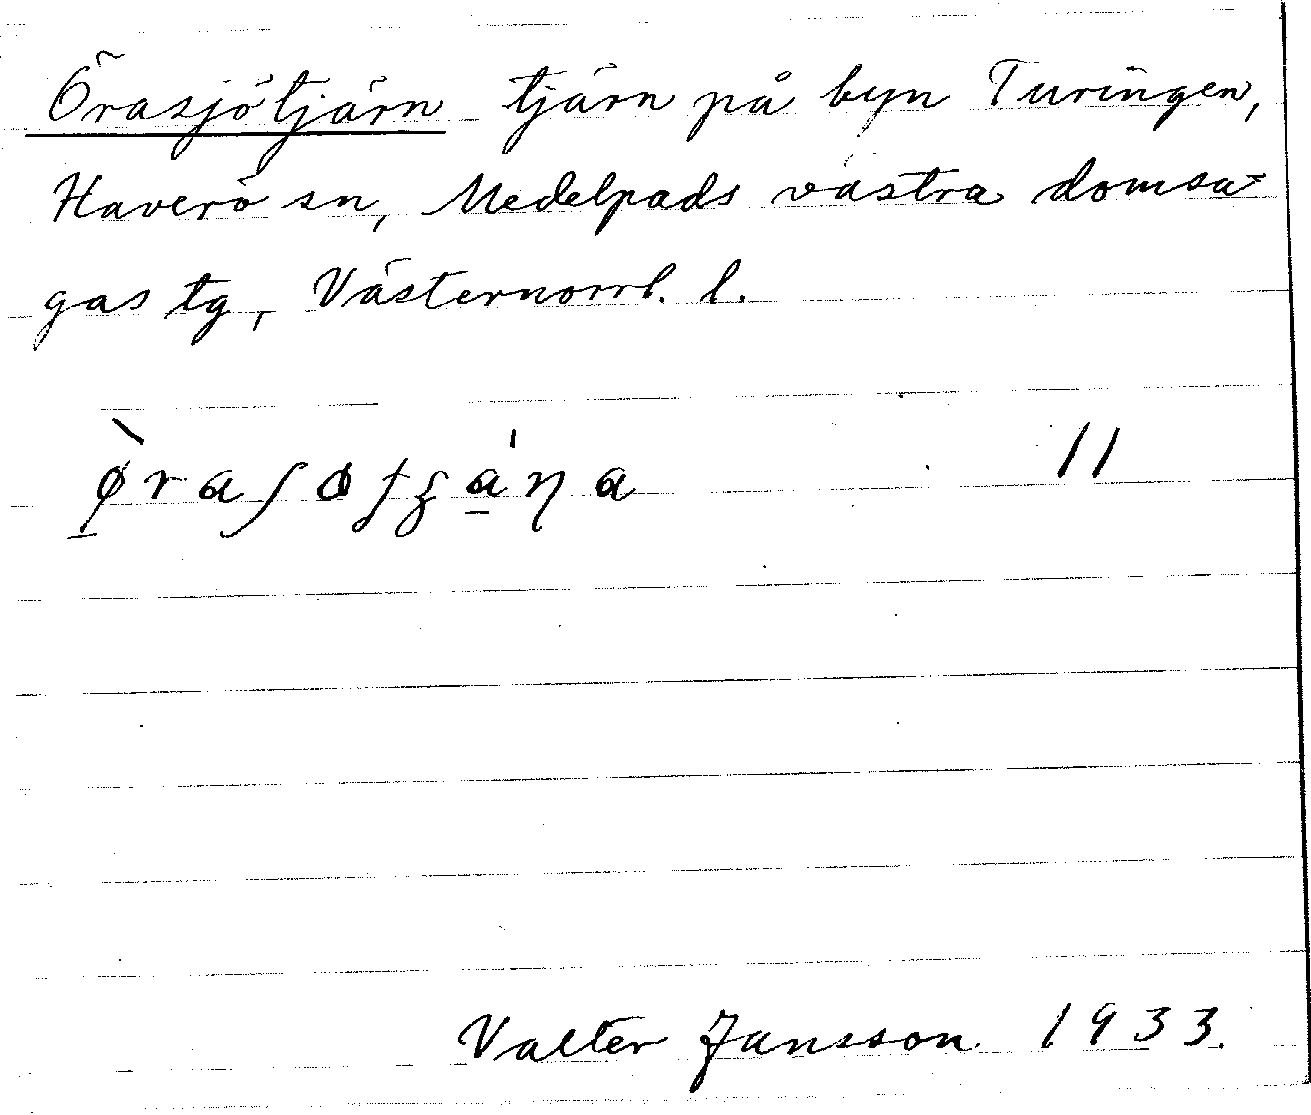 Örasjötjärn tjärn på byn Turingen,
Haverö sn, Medelpads västra domsa=
gas tg, Västernorrl. l.
11
Valter Jansson 1933.